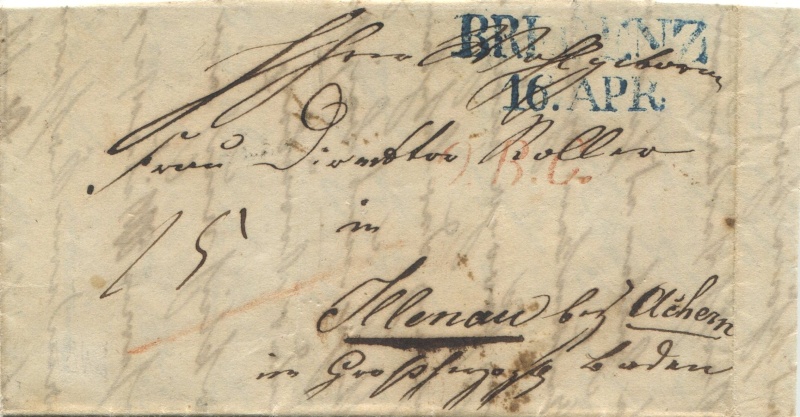 BREGENZ
16. APR.
Ihrer Wohlgeboren
Frau Direktor Roller
R.C.
in
15
Illenau bey Achern
im Großherzogth Baden